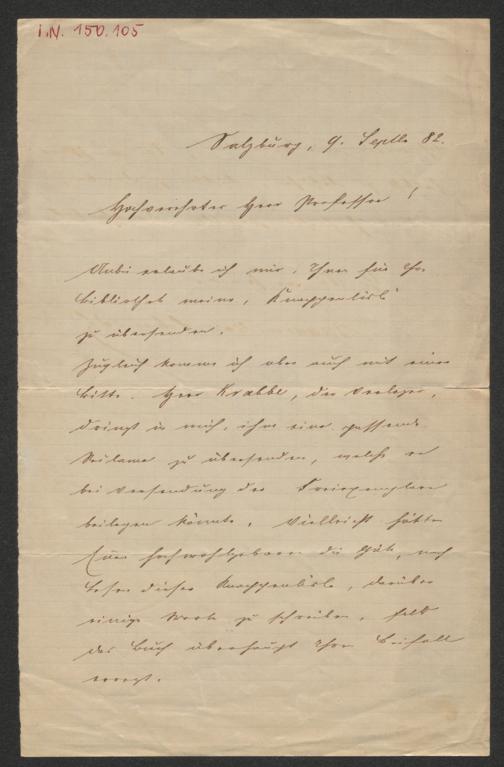 I.N. 150.105
Salzburg, 9. Septb 82.
Hochverehrter Herr Professor!
Anbei erlaube ich mir, Ihnen für Ihre
Bibliothek meine „Knappenlisl“
zu übersenden.
Zugleich komme ich aber auch mit einer
Bitte. Herr Krabbe, der Verleger,
dringt in mich, ihm eine passende
Reclame zu übersenden, welche er
bei Versendung der Freiexemplare
beilegen könnte. Vielleicht hätten
Euer Hochwohlgeboren die Güte, nach
Lesen dieser Knappenlisl, darüber
einige Worte zu schreiben, falls
das Buch überhaupt Ihren Beifall
erregt.